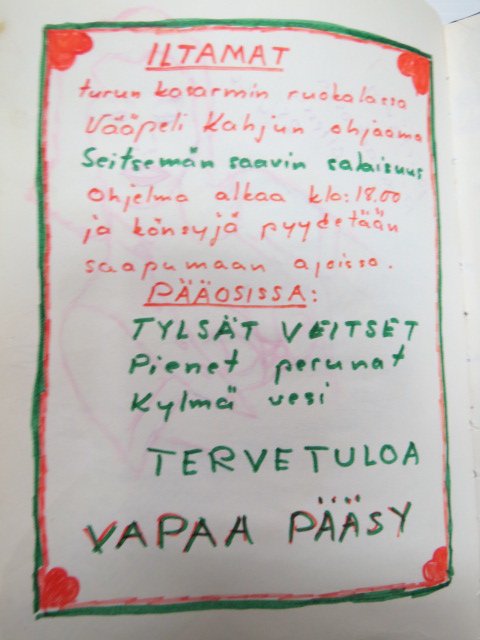 ILTAMAT
turun kasarmin ruokalassa
Vääpeli Kahjun ohjaama
Seitsemän saavin salaisuus
Ohjelma alkaa klo: 18.00
ja könsyjä pyydetään
saapumaan ajoissa.
PÄÄOSISSA:
TYLSÄT VEITSET
Pienet perunat
Kylmä vesi
TERVETULOA
VAPAA PÄÄSY